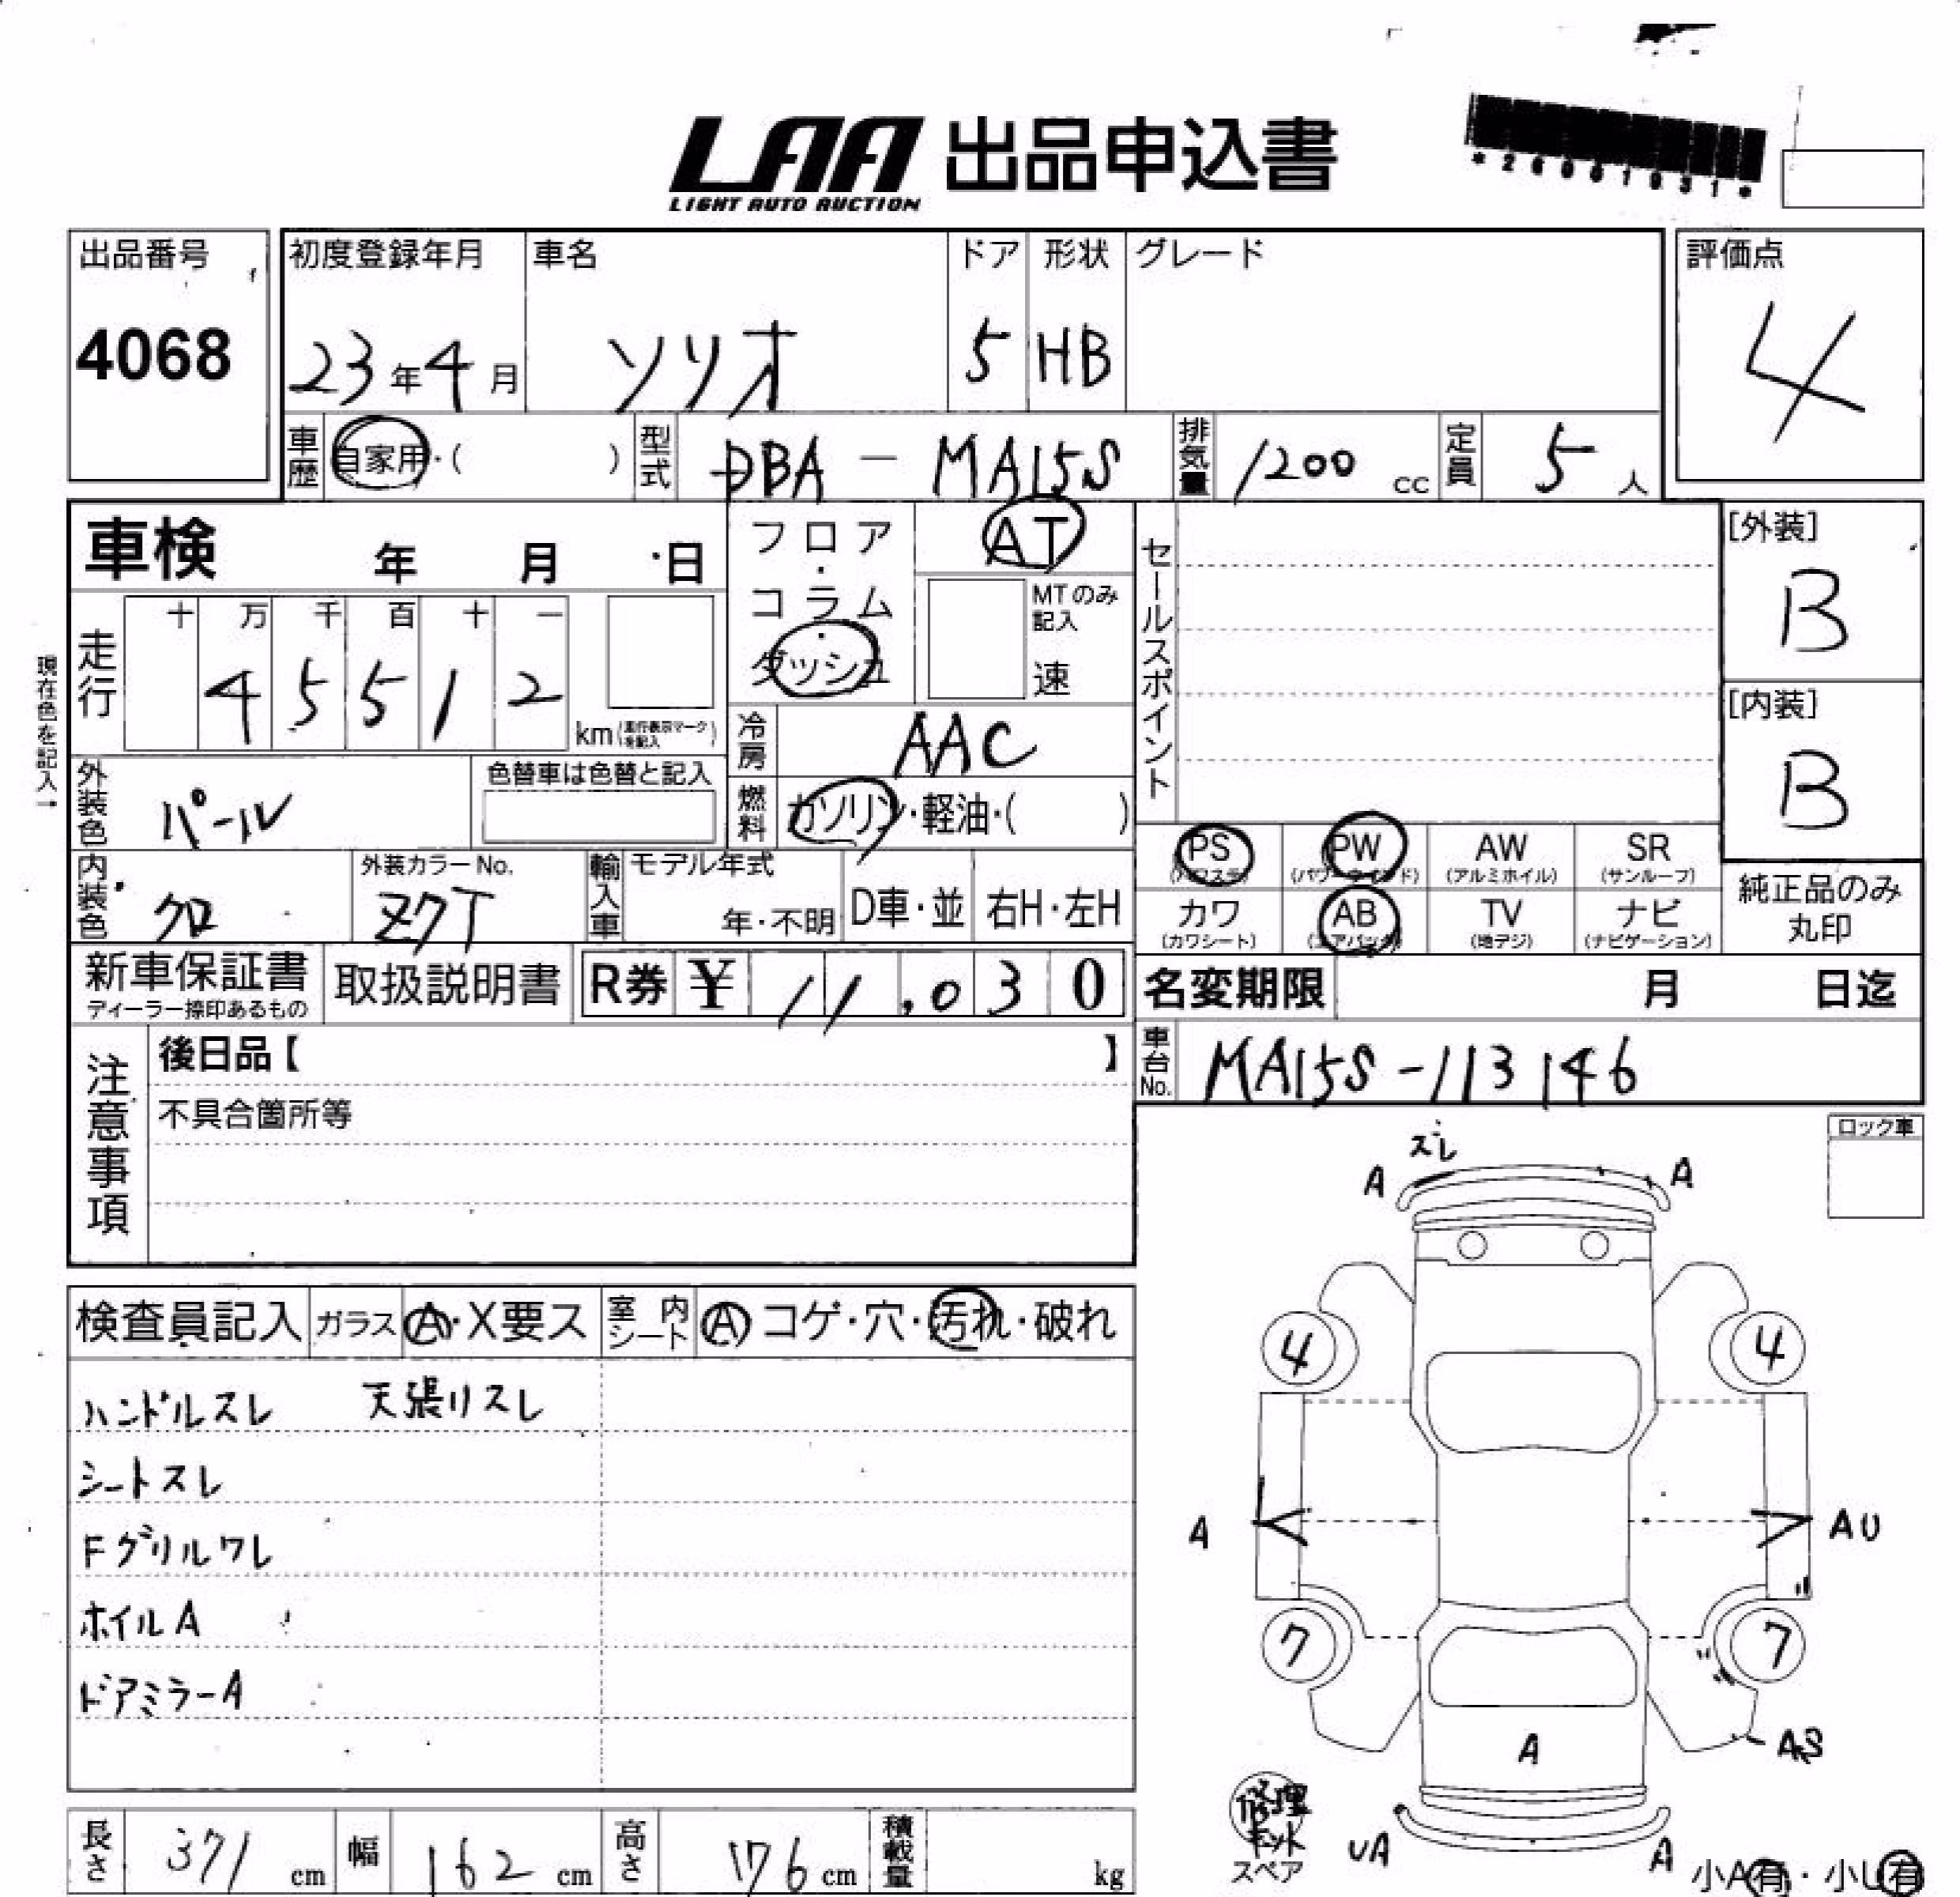 LAA 出品申込書
LIGHT AUTO AUCTION
出品番号
4068
初度登録年月
23年4月
車名
ソリオ
ドア
5
形状
HB
グレード
評価点
4
車歴
自家用・( )
型式
DBA - MA15S
排気量
1200 cc
定員
5 人
車検 年 月 日
フロア・コラム・ダッシュ
AT
MTのみ記入
速
セールスポイント
[外装]
B
[内装]
B
現在色を記入→
走行
十 万 千 百 十 一
4 5 5 1 2
km
冷房
AAC
外装色
パール
色替車は色替と記入
燃料
ガソリン・軽油・( )
PS
(パワステ)
PW
(パワーウインド)
AW
(アルミホイル)
SR
(サンルーフ)
カワ
(カワシート)
AB
(エアバック)
TV
(地デジ)
ナビ
(ナビゲーション)
純正品のみ
丸印
内装色
クロ
外装カラーNo.
Z7T
輸入車
モデル年式
年・不明
D車・並
右H・左H
新車保証書
ディーラー捺印あるもの
取扱説明書
R券 ¥ 11,030
名変期限 月 日迄
車台No.
MA15S-113146
注意事項
後日品【 】
不具合箇所等
ロック車
検査員記入
ガラス
A・X要ス
室内シート
A コゲ・穴・汚れ・破れ
ハンドルスレ 天張リスレ
シートスレ
Fグリルワレ
ホイルA
ドアミラーA
スレ
A A
4 4
A AU
7 7
A AS
修理キット
スペア
UA A
小A有・小U有
長さ
371 cm
幅
162 cm
高さ
176 cm
積載量
kg